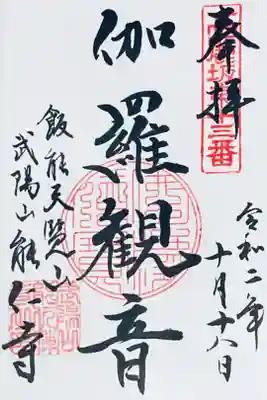 奉拝
令和二年
十月十八日
伽羅観音
飯能天覧山
武陽山能仁寺